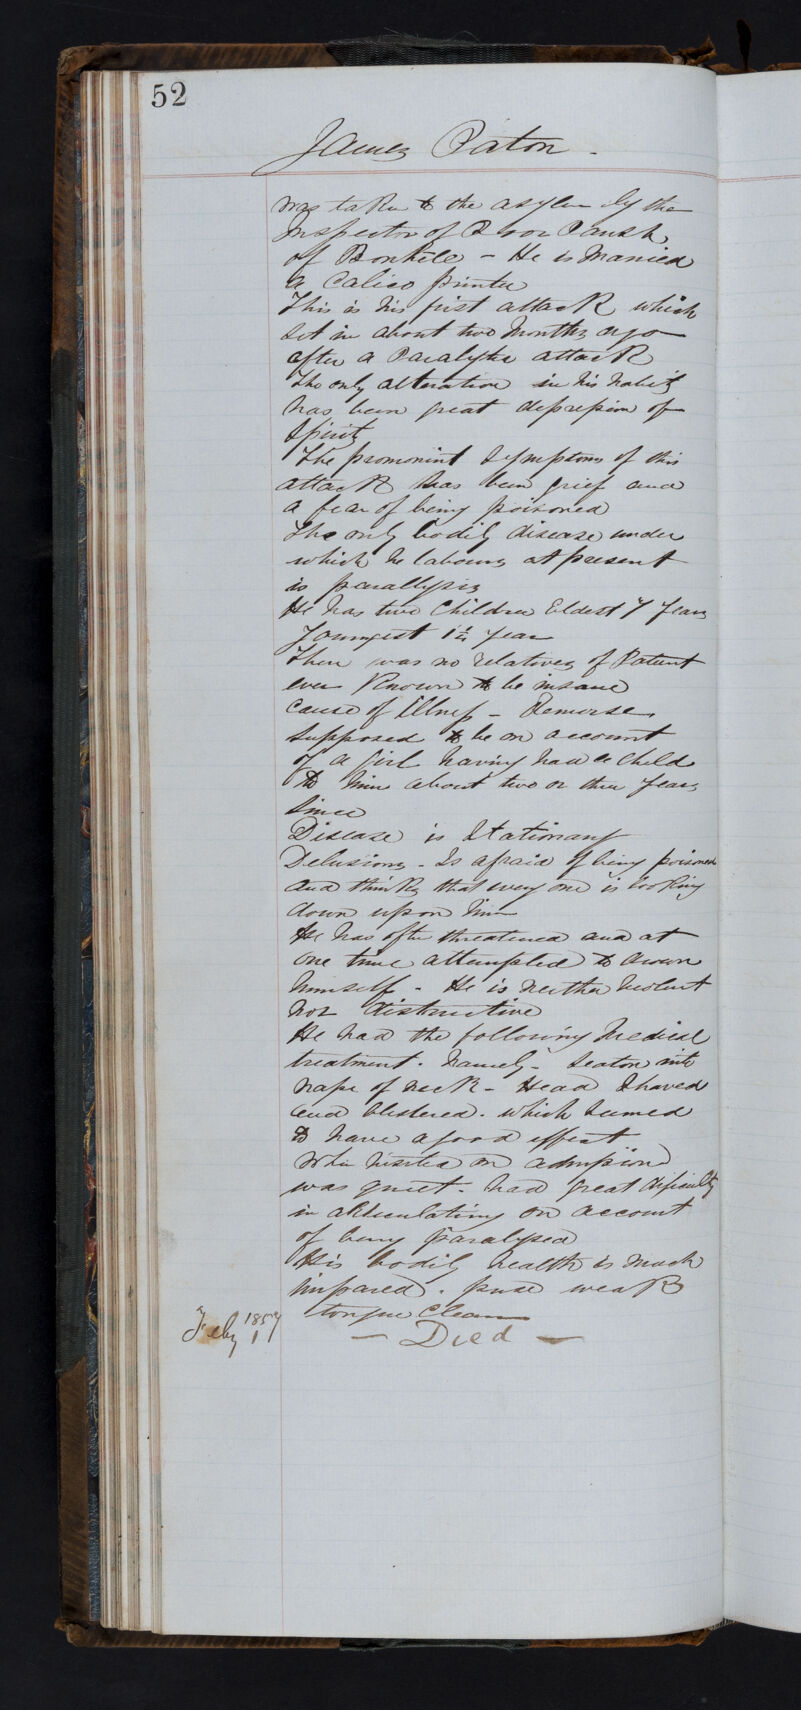 52
James Paton -
was taken to the asylum by the
Inspector of Poor Parish
of Bonhill - He is Married
a Calico printer
This is his first attack which
set in about two Months ago
after a Paralytic attack
The only alteration in his habits
has been great depression of
Spirits
The promonint Symptoms of this
attack has been grief and
a fear of being poisoned
The only bodily disease under
which he labours at present
is parallysis
He has two Children Eldest 7 Years
Youngest 1½ Year
There was no relatives of Patient
ever Known to be insane
Cause of Illness - Remorse
Supposed to be on account
of a Girl having had a Child
to him about two or three Years
Since
Disease is Stationary
Delusions - Is afraid of being poisoned
and thinks that every one is looking
down upon him
He has often threatened and at
one time attempted to drown
himself - He is neither violent
nor distructive
He had the following Medical
treatment. namely - Seaton into
nape of neck - Head Shaved
and blistered. which seemed
to have a good effect
When visited on admission
was quiet. had great difficulty
in articulating on account
of being Paralysed
His bodily health is much
impared. pulse weak
tongue Clean
Feby 1857
1
- Died -